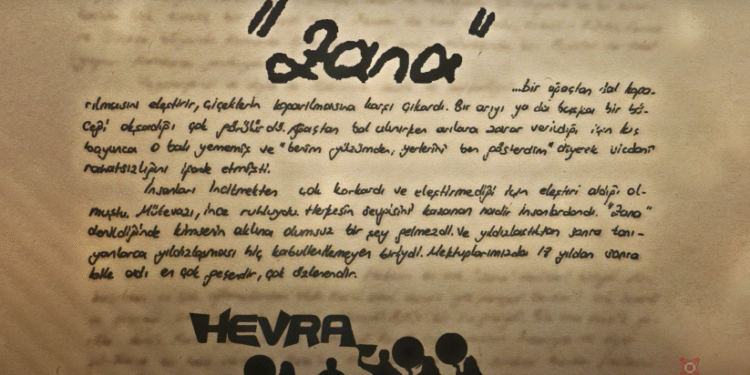 "Zana"
...bir ağaçtan dal kopa-
rılmasını eleştirir, çiçeklerin koparılmasına karşı çıkardı. Bir arıyı ya da başka bir bö-
ceği okşadığı çok görülürdü. Ağaçtan bal alınırken arılara zarar verildiği için kış
boyunca o balı yememiş ve "benim yüzümden, yerlerini ben gösterdim" diyerek vicdani
rahatsızlığını ifade etmişti.
İnsanları incitmekten çok korkardı ve eleştirmediği için eleştiri aldığı ol-
muştu. Mütevazı, ince ruhluydu. Herkesin sevgisini kazanan nadir insanlardandı. "Zana"
denildiğinde kimsenin aklına olumsuz bir şey gelmezdi. Ve yıldızlaştıktan sonra tanı-
yanlarca yıldızlaşması hiç kabullenilemeyen biriydi. Mektuplarımızda 18 yıldan sonra
bile adı en çok geçendir, çok özlenendir.
HEVRA